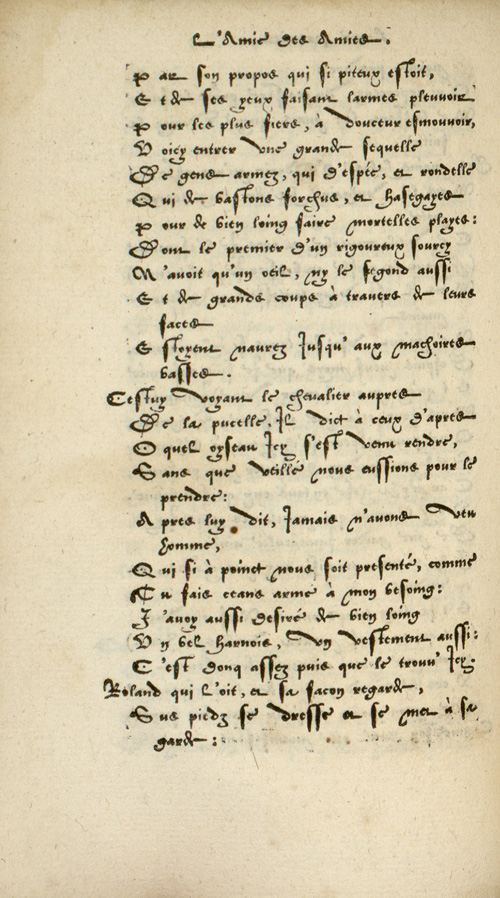 L'Amie des Amies.
P ar son propos qui si piteux estoit,
E t de ses yeux faisant larmes pleuvoir
P our les plus fiers, à douceur esmouvoir,
V oicy entrer une grande sequelle
D e gens armez, qui d'espée, et rondelle
Q ui de bastons forchus, et hasegayes
P our de bien loing faire mortelles playes:
D ont le premier d'un rigoureux sourcy
N 'avoit qu'un oeil, ny le segond aussi
E t de grands coups à travers de leurs
faces
E stoyent naurez Jusqu' aux machoires
basses.
Cestuy voyant le chevalier aupres
D e la pucelle, Il dict à ceux d'apres
O quel oyseau Icy s'est venu rendre,
S ans que veillé nous eussions pour le
prendre:
A pres luy dit, Jamais n'avons veu
homme,
Q ui si à poinct nous soit presenté, comme
T u fais ceans armé à mon besoing:
J 'avoy aussi desiré de bien loing
V n bel harnois, un vestement aussi:
C 'est donq assez puis que le trouv' Icy.
Roland qui l'oit, et sa facon regarde,
S us piedz se dresse et se met à sa
garde: